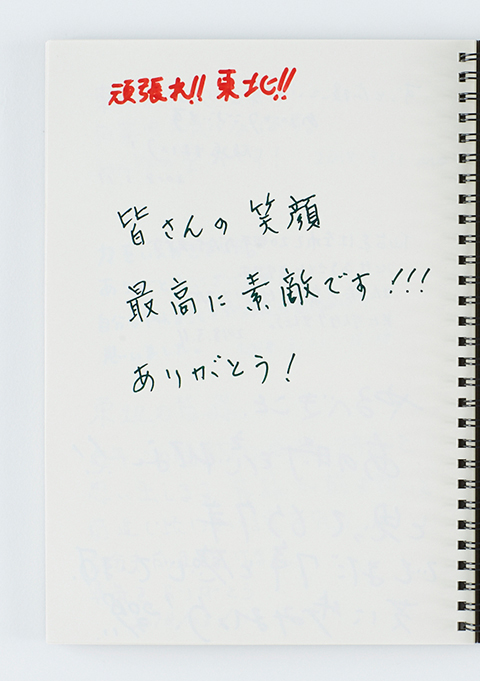 頑張れ!! 東北!!
皆さんの笑顔
最高に素敵です!!!
ありがとう!